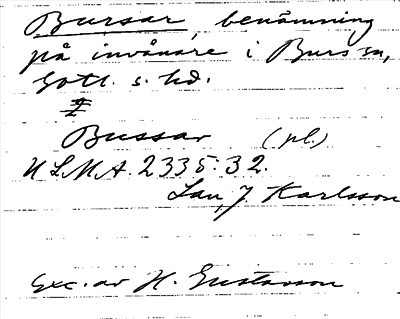 Bursar, benämning
på invånare i Burs sn,
Gotl. s. hd.
Bussar (pl.)
ULMA. 2335:32.
J. Karlsson
Exc. av H. Gustavson